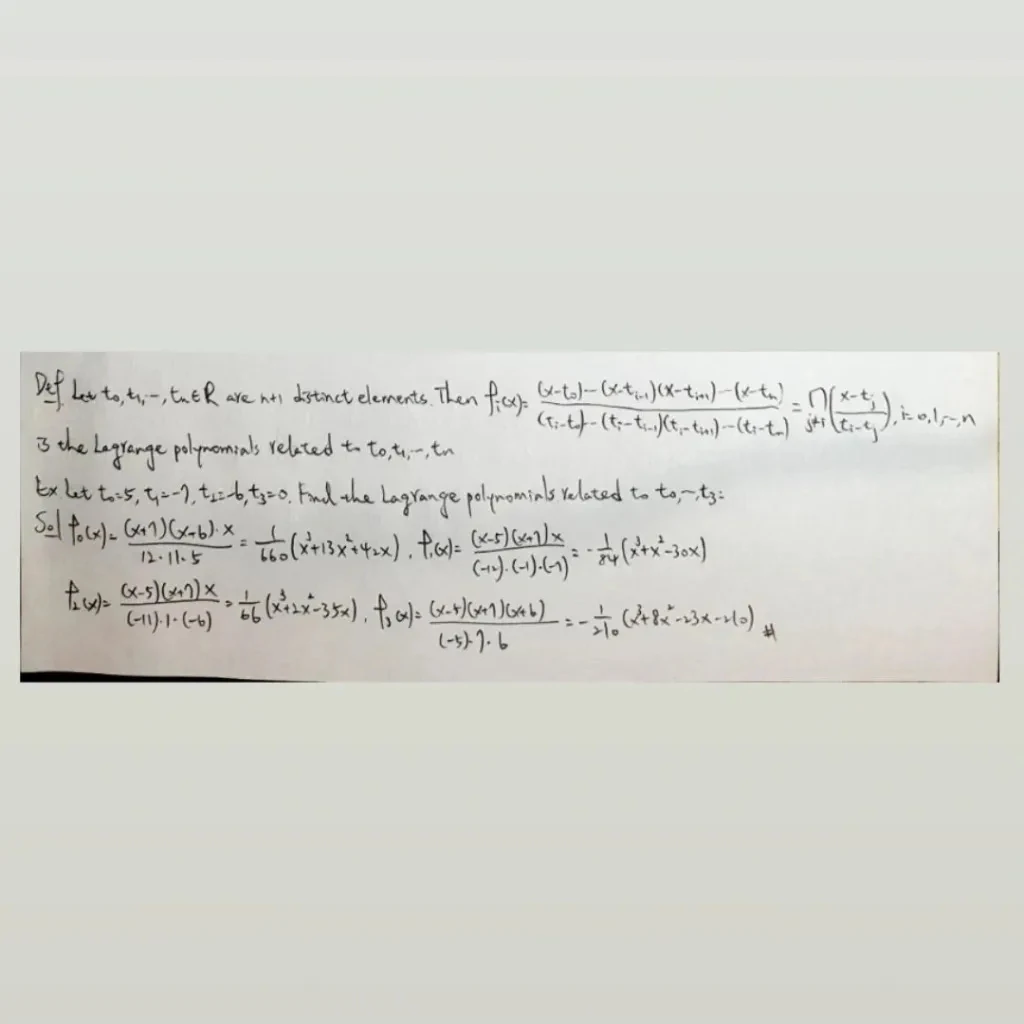 Def Let t₀,t₁,⋯,tₙ∈R are n+1 distinct elements. Then f_i(x)= (x-t₀)⋯(x-t_{i-1})(x-t_{i+1})⋯(x-tₙ) / (t_i-t₀)⋯(t_i-t_{i-1})(t_i-t_{i+1})⋯(t_i-tₙ) = ∏_{j≠i} ((x-t_j)/(t_i-t_j)), i=0,1,⋯,n
is the Lagrange polynomials related to t₀,t₁,⋯,tₙ
Ex Let t₀=5, t₁=-7, t₂=-6, t₃=0. Find the Lagrange polynomials related to t₀,⋯,t₃=
Sol f₀(x)= (x+7)(x+6)·x / 12·11·5 = 1/660 (x³+13x²+42x), f₁(x)= (x-5)(x+7)x / (-12)·(-1)·(-7) = -1/84 (x³+x²-30x)
f₂(x)= (x-5)(x+7)x / (-11)·1·(-6) = 1/66 (x³+2x²-35x), f₃(x)= (x-5)(x+7)(x+6) / (-5)·7·6 = -1/210 (x³+8x²-23x-210) #